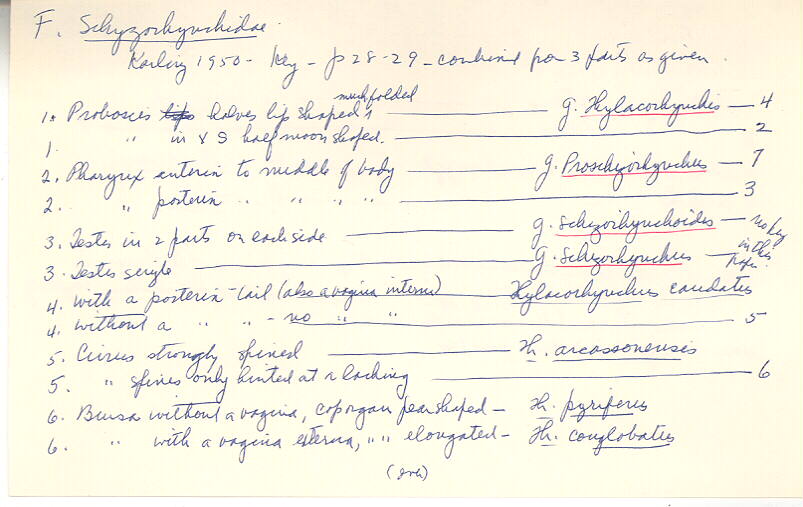 F. Schizorhynchidae
Karling 1950 - Key - p 28-29 - combined from 3 parts as given.
1. Proboscis halves lip shaped, much folded — g. Thylacorhynchus — 4
1. " in x s half moon shaped. — 2
2. Pharynx anterior to middle of body — g. Proschizorhynchus — 7
2. " posterior " " " " — 3
3. Testes in 2 parts on each side — g. Schizorhynchoides — no key in this paper.
3. Testes single — g. Schizorhynchus —
4. With a posterior tail (also a vagina interna) — Thylacorhynchus caudatus
4. Without a " " - no " " — 5
5. Cirrus strongly spined — Th. arcassonensis
5. " spines only hinted at or lacking — 6
6. Bursa without a vagina, cop organ pear shaped — Th. pyriferus
6. " with a vagina externa, " " elongated — Th. conglobatus
(over)